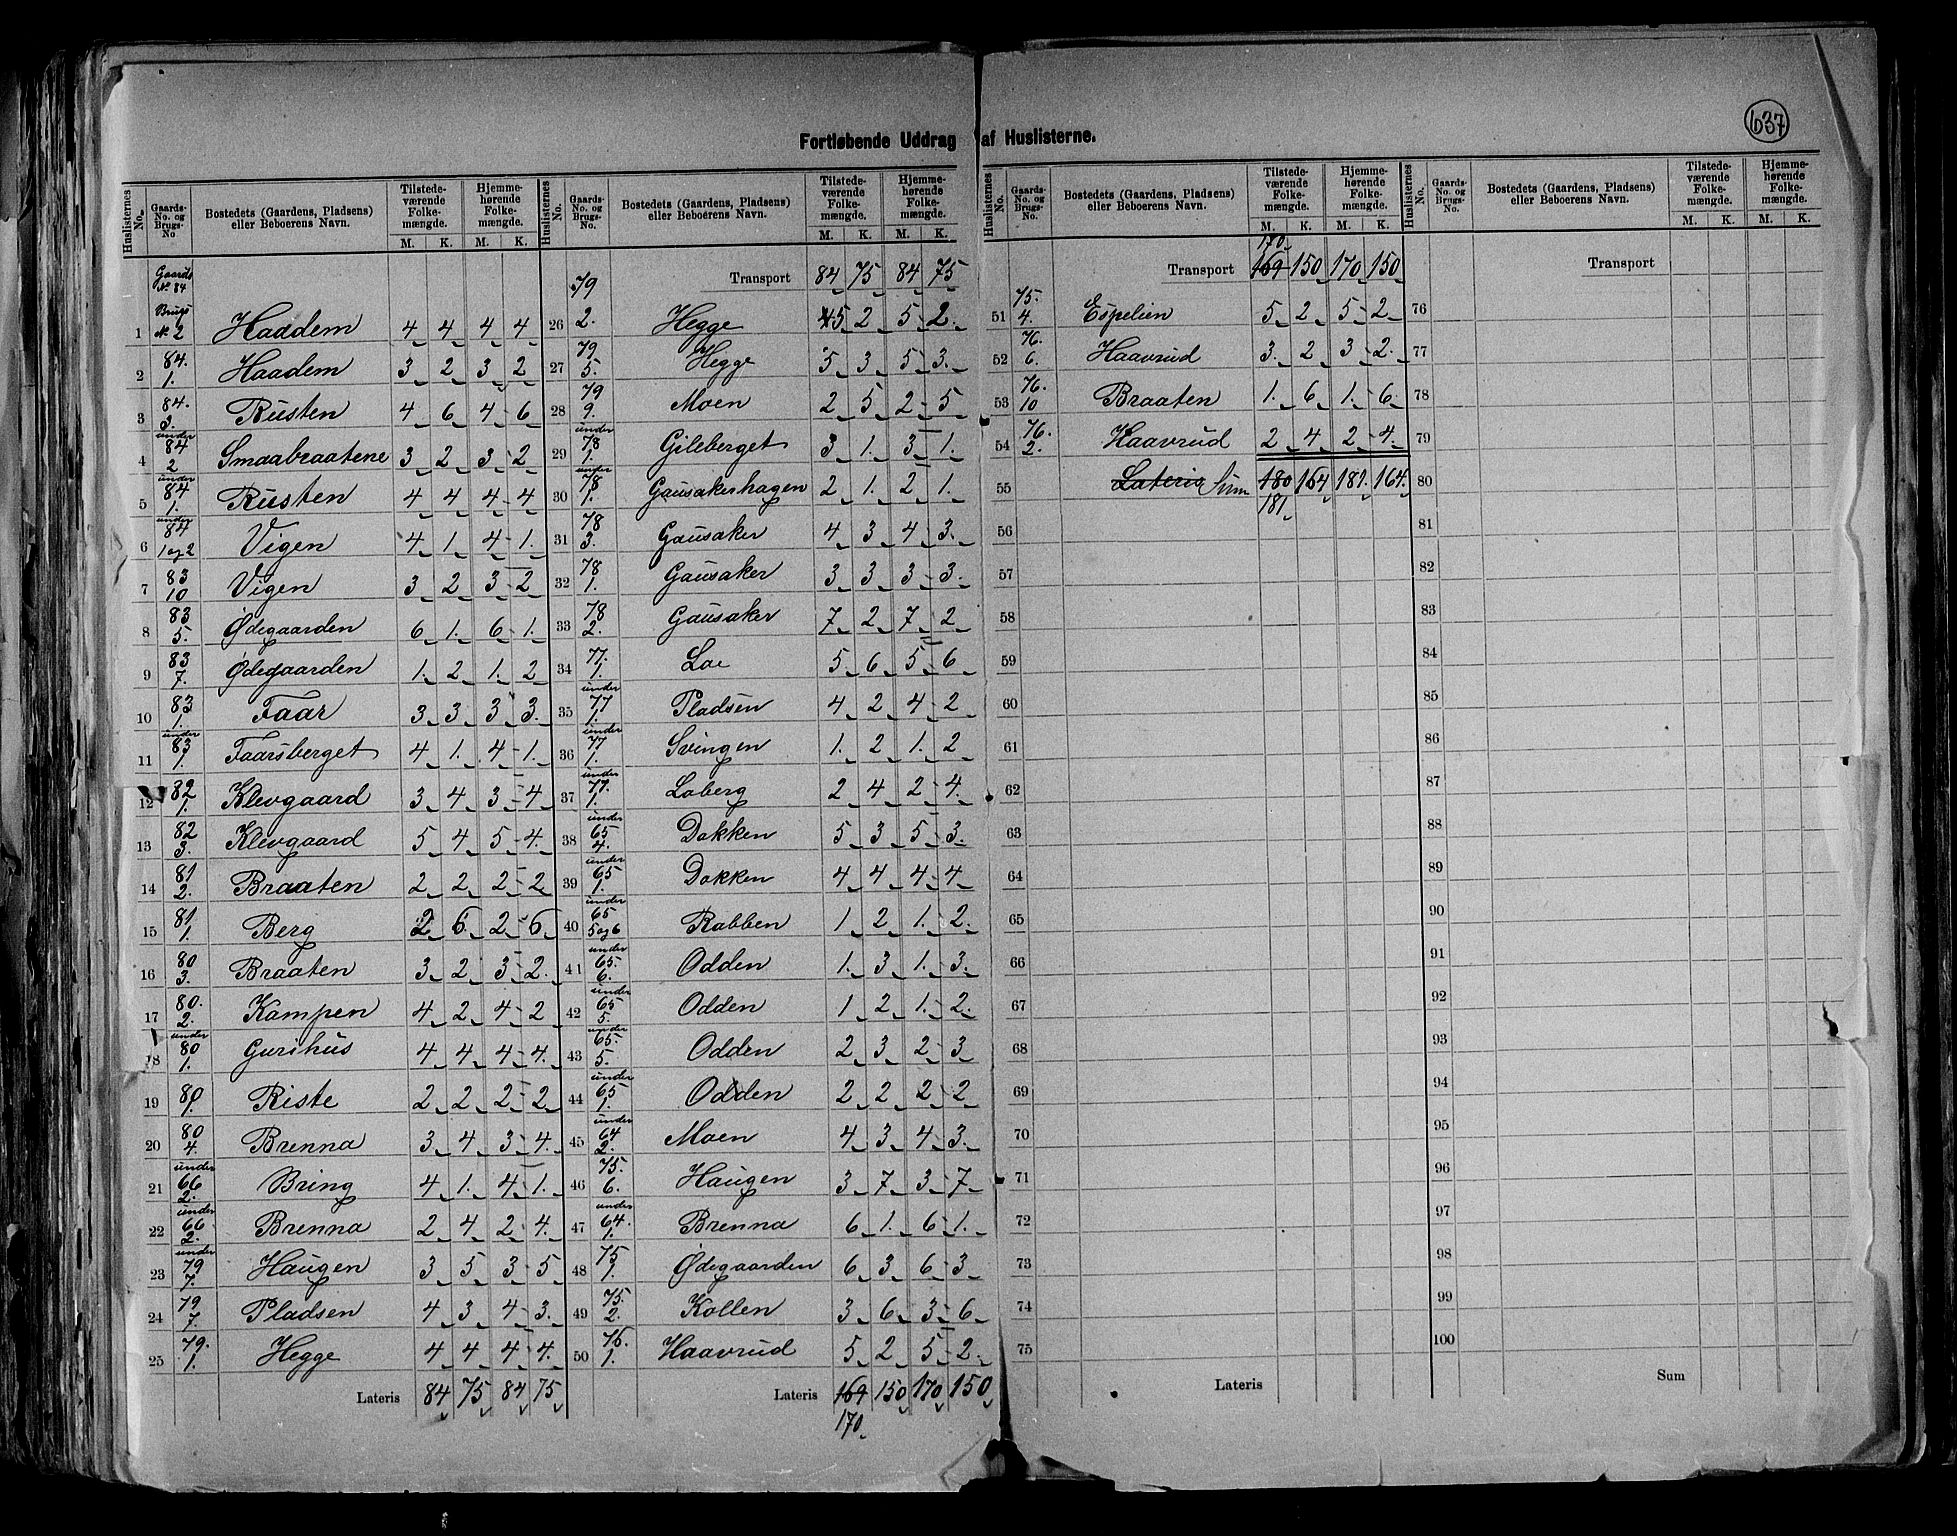 637
Fortløbende Uddrag af Huslisterne.
Huslisternes No. | Gaards-No. og Brugs-No. | Bostedets (Gaardens, Pladsens) eller Beboerens Navn. | Tilstedeværende Folkemængde. M. K. | Hjemmehørende Folkemængde. M. K.
Gaards No 84
1 Brugs No 2 Haadem 4 4 4 4
2 84. 1. Haadem 3 2 3 2
3 84. 3. Rusten 4 6 4 6
4 under 84 2 Smaabraatene 3 2 3 2
5 under 84 1. Rusten 4 4 4 4
6 under 84 1 og 2 Vigen 4 1 4 1.
7 83 10 Vigen 3 2 3 2
8 83 5. Ødegaarden 6 1. 6 1.
9 83 7. Ødegaarden 1. 2 1. 2
10 83 1. Faar 3 3 3 3.
11 under 83 1. Faarsberget 4 1. 4 1.
12 82 1. Klevgaard 3 4 3 4
13 82 3. Klevgaard 5 4 5 4.
14 81 2. Braaten 2 2 2 2
15 81 1. Berg 2 6 2 6
16 80 3. Braaten 3 2 3 2.
17 80. 2. Kampen 4 2 4 2
18 under 80 1. Gurihus 4 4 4 4.
19 80 1. Riste 2 2 2 2
20 80 4. Brenna 3 4 3 4.
21 under 66 2. Bring 4 1. 4 1.
22 under 66 2. Brenna 2 4 2 4.
23 under 79 7. Haugen 3 5 3 5
24 79 7. Pladsen 4 3 4 3.
25 79. 1. Hegge 4 4 4 4.
Lateris 84 75 84 75
Huslisternes No. | Gaards-No. og Brugs-No. | Bostedets (Gaardens, Pladsens) eller Beboerens Navn. | Tilstedeværende Folkemængde. M. K. | Hjemmehørende Folkemængde. M. K.
Transport 84 75 84 75
26 79 2. Hegge 5 2 5 2.
27 79 5. Hegge 5 3 5 3.
28 79 9. Moen 2 5 2 5
29 under 78 1. Gileberget 3 1. 3 1.
30 under 78 1. Gausakerhagen 2 1. 2 1.
31 78 3 Gausaker 4 3 4 3.
32 78 1. Gausaker 3 3 3 3.
33 78 2. Gausaker 7 2 7 2
34 77. 1. Loe 5 6 5 6
35 under 77 1. Pladsen 4 2 4 2
36 under 77 1. Svingen 1. 2 1. 2
37 under 77. 1. Loberg 2 4 2 4.
38 under 65 4. Dokken 5 3 5 3.
39 under 65 1. Dokken 4 4 4 4
40 under 65 5 og 6 Rabben 1 2 1. 2.
41 under 65. 6. Odden 1. 3 1. 3.
42 under 65 5. Odden 1 2 1. 2.
43 under 65. 5. Odden 2 3 2 3
44 under 65 1. Odden 2 2 2 2
45 under 64 2. Moen 4 3 4 3.
46 75. 6. Haugen 3 7 3 7
47 under 64. 1. Brenna 6 1. 6 1.
48 75 1. Ødegaarden 6 3 6 3
49 75. 2. Kollen 3 6 3 6
50 76. 1. Haavrud 5 2 5 2.
Lateris 169 150 170 150
170
Huslisternes No. | Gaards-No. og Brugs-No. | Bostedets (Gaardens, Pladsens) eller Beboerens Navn. | Tilstedeværende Folkemængde. M. K. | Hjemmehørende Folkemængde. M. K.
170
Transport 169 150 170 150
51 75. 4. Espelien 5 2 5 2
52 76. 6. Haavrud 3. 2 3 2.
53 76. 10 Braaten 1. 6 1. 6.
54 76. 2. Haavrud 2 4 2 4.
55 Lateris Sum 180 164 181. 164.
181
56
57
58
59
60
61
62
63
64
65
66
67
68
69
70
71
72
73
74
75
Lateris
Huslisternes No. | Gaards-No. og Brugs-No. | Bostedets (Gaardens, Pladsens) eller Beboerens Navn. | Tilstedeværende Folkemængde. M. K. | Hjemmehørende Folkemængde. M. K.
Transport
76
77
78
79
80
81
82
83
84
85
86
87
88
89
90
91
92
93
94
95
96
97
98
99
100
Sum